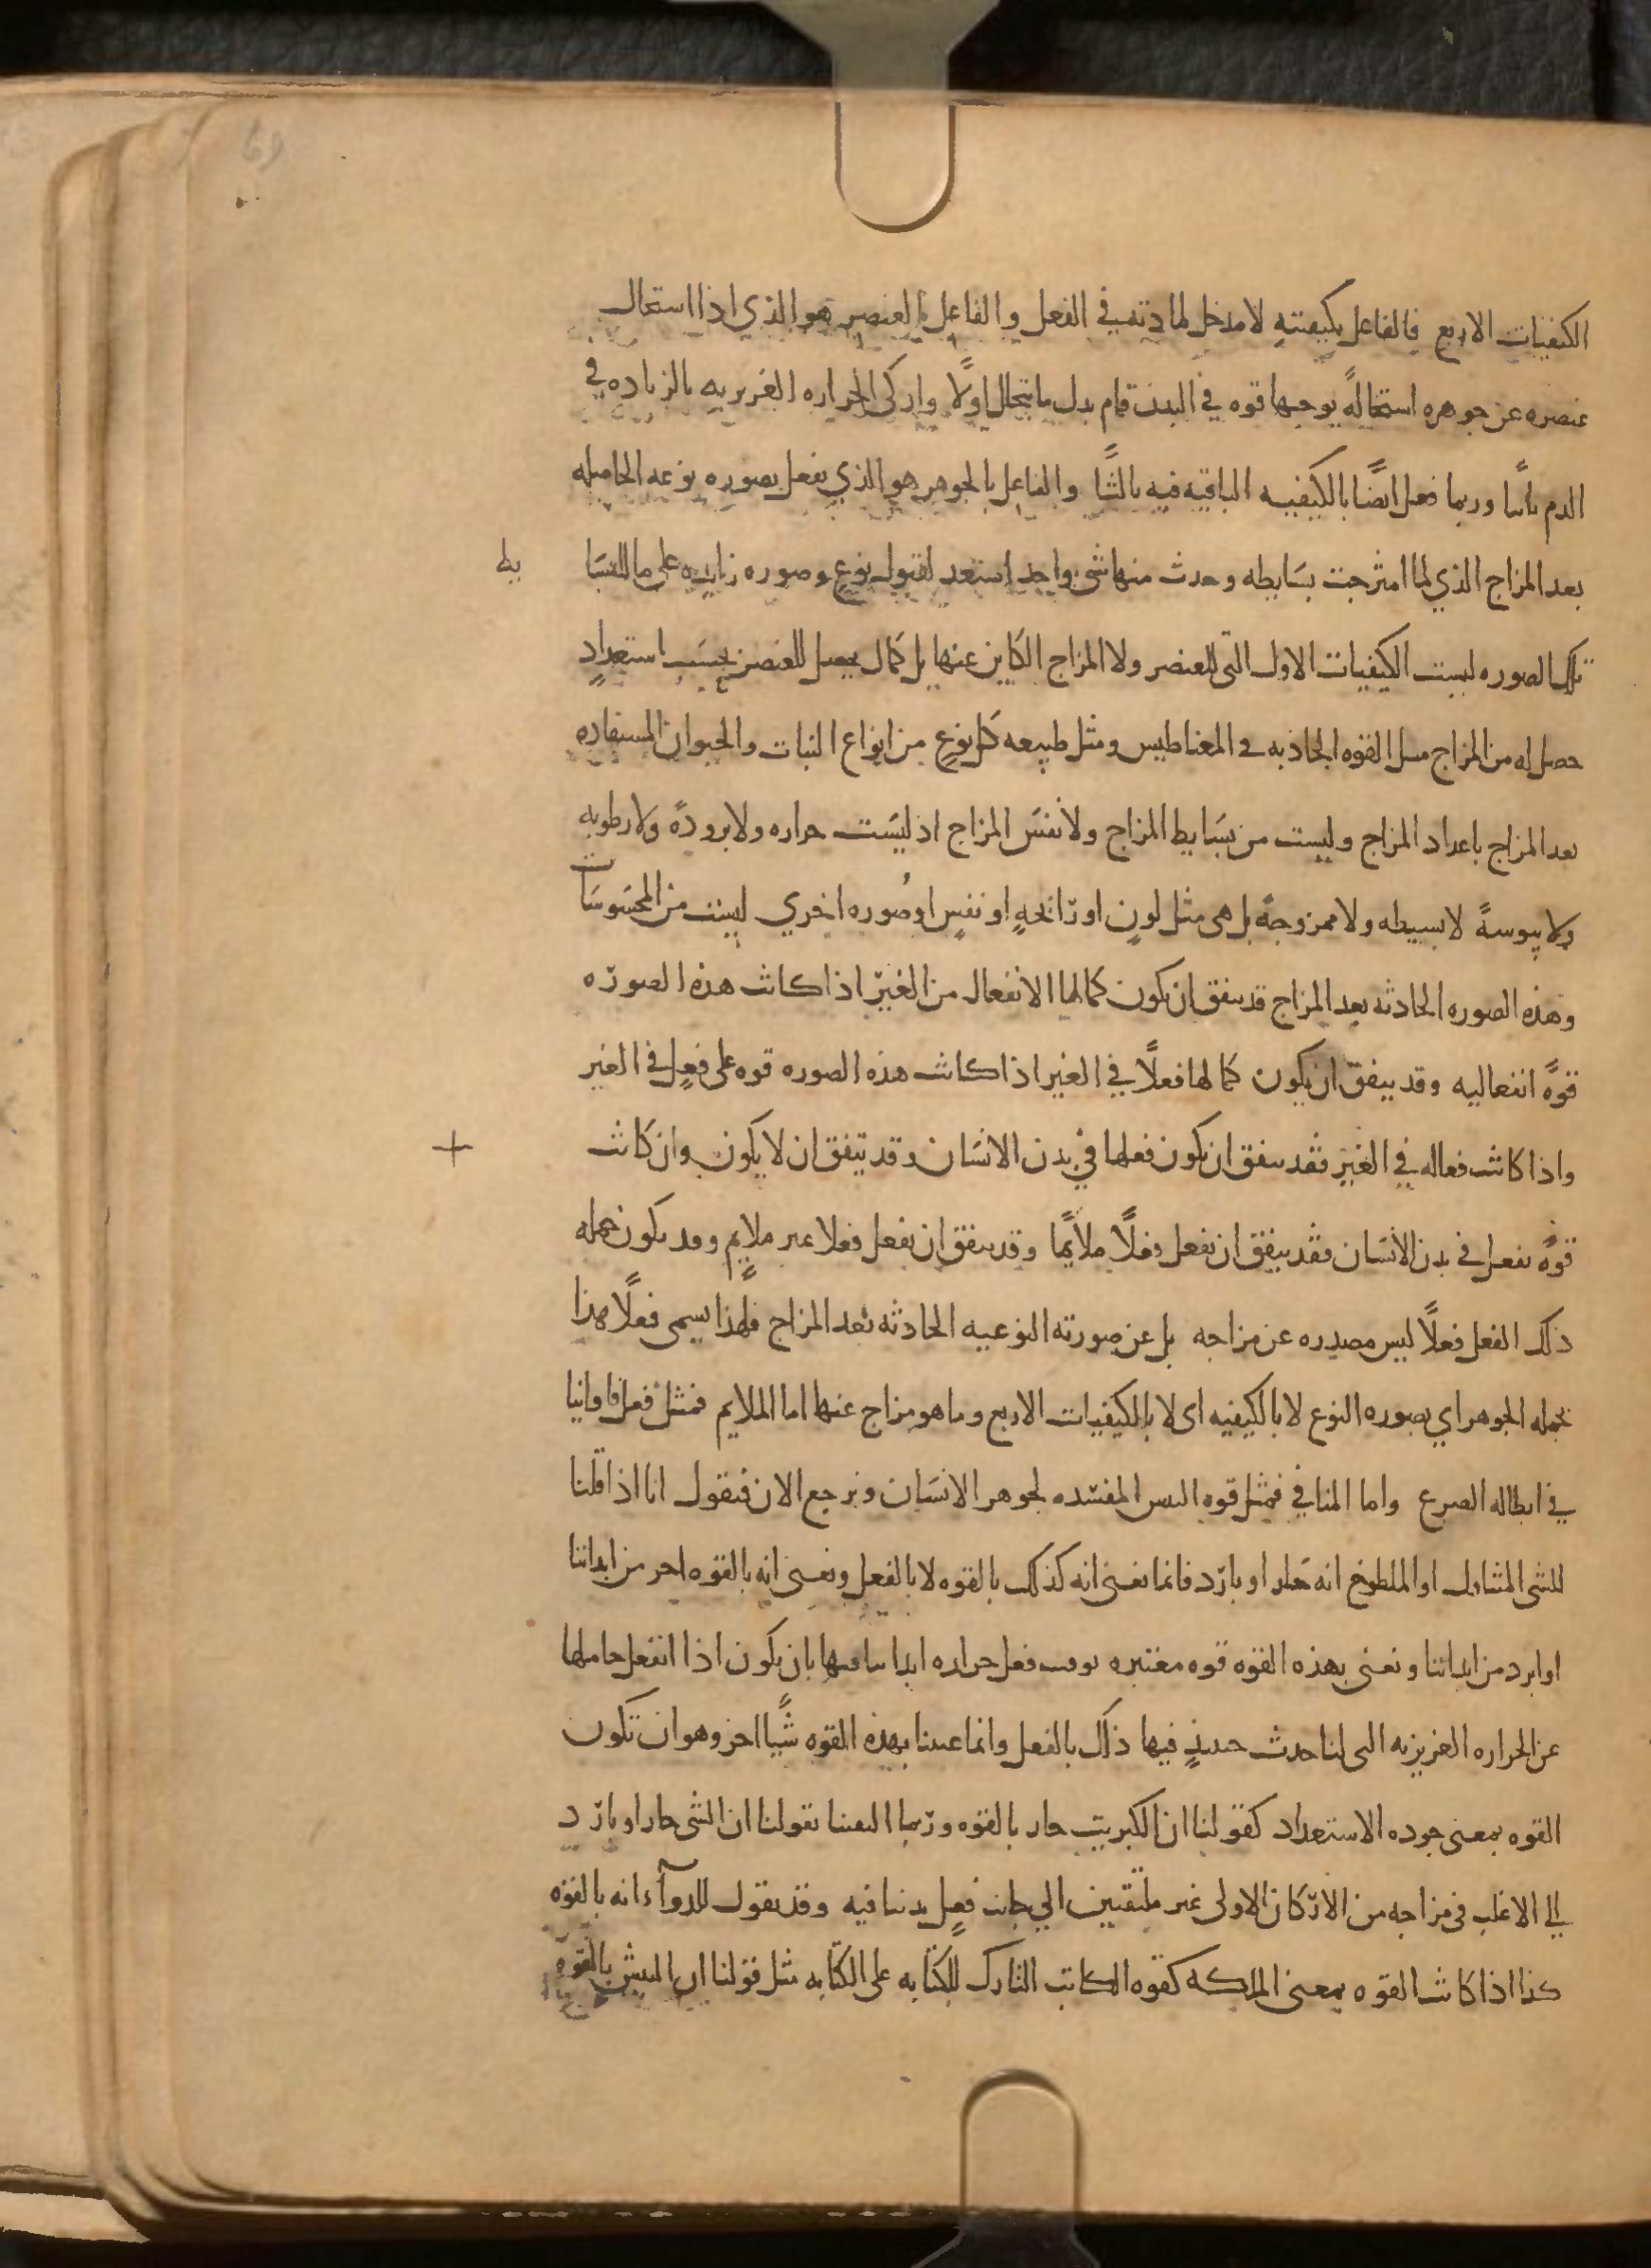 الكيفيات الاربع فالفاعل بكيفيته لا مدخل لمادته في الفعل والفاعل بالعنصر هو الذي اذا استحال
عنصره عن جوهره استحالةً يوجبها قوه في البدن قام بدل ما يتحلل اولًا واذكى الحراره الغريزيه بالزياده في
الدم ثانيًا وربما فعل ايضًا بالكيفيه الباقيه فيه ثالثًا والفاعل بالجوهر هو الذي يفعل بصوره نوعه الحاصله
بعد المزاج الذي لما امتزجت بسايطه وحدث منها شي واحد استعد لقبول نوع وصوره زايده على ما للبسا يط
تلك الصوره ليست الكيفيات الاول التي للعنصر ولا المزاج الكاين عنها بل كمال يحصل للعنصر بحسب استعدادٍ
حصل له من المزاج مثل القوه الجاذبه في المغناطيس ومثل طبيعه كل نوعٍ من انواع النبات والحيوان المستفاده
بعد المزاج باعداد المزاج وليست من بسايط المزاج ولا نفس المزاج اذ ليست حراره ولا برودةً ولا رطوبه
ولا يبوسةً لا بسيطه ولا ممزوجةً بل هى مثل لونٍ او رائحهٍ او نفسٍ او صوره اخري ليست من المحسوسات
وهذه الصوره الحادثه بعد المزاج قد يتفق ان يكون كمالها الانفعال من الغير اذا كانت هذه الصوره
قوةً انفعاليه وقد يتفق ان يكون كمالها فعلًا في الغير اذا كانت هذه الصوره قوه على فعلٍ في الغير
واذا كانت فعاله في الغير فقد يتفق ان يكون فعلها في بدن الانسان وقد يتفق ان لا يكون وان كانت
قوةً تفعل في بدن الانسان فقد يتفق ان تفعل فعلًا ملايمًا وقد يتفق ان تفعل فعلا غير ملايمٍ وقد يكون جمله
ذلك الفعل فعلًا ليس مصدره عن مزاجه بل عن صورته النوعيه الحادثه بعد المزاج فلهذا يسمى فعلًا هذا
بجمله الجوهر اي بصوره النوع لا بالكيفيه اى لا بالكيفيات الاربع وما هو مزاج عنها اما الملايم فمثل فعل فاوانيا
في ابطاله الصرع واما المنافي فمثل قوه البيش المفسده لجوهر الانسان ونرجع الان فنقول انا اذا قلنا
للشى المتناول او الملطوخ انه حار او بارد فانما نعنى انه كذلك بالقوه لا بالفعل ونعنى انه بالقوه احر من ابداننا
او ابرد من ابداننا ونعنى بهذه القوه قوه معتبره بوقت فعل حراره ابداننا فيها بان يكون اذا انفعل حاملها
عن الحراره الغريزيه التى لنا حدث حينئذٍ فيها ذلك بالفعل وانما عنينا بهذه القوه شيًا اخر وهو ان تكون
القوه بمعنى جوده الاستعداد كقولنا ان الكبريت حار بالقوه وربما التفتنا بقولنا ان الشى حار او بارد
الي الاغلب فى مزاجه من الاركان الاولى غير ملتفتين الي جانب فعل بدننا فيه وقد نقول للدوآء انه بالقوه
كذا اذا كانت القوه بمعنى الملكه كقوه الكاتب التارك للكتابه على الكتابه مثل قولنا ان البيش بالقوه